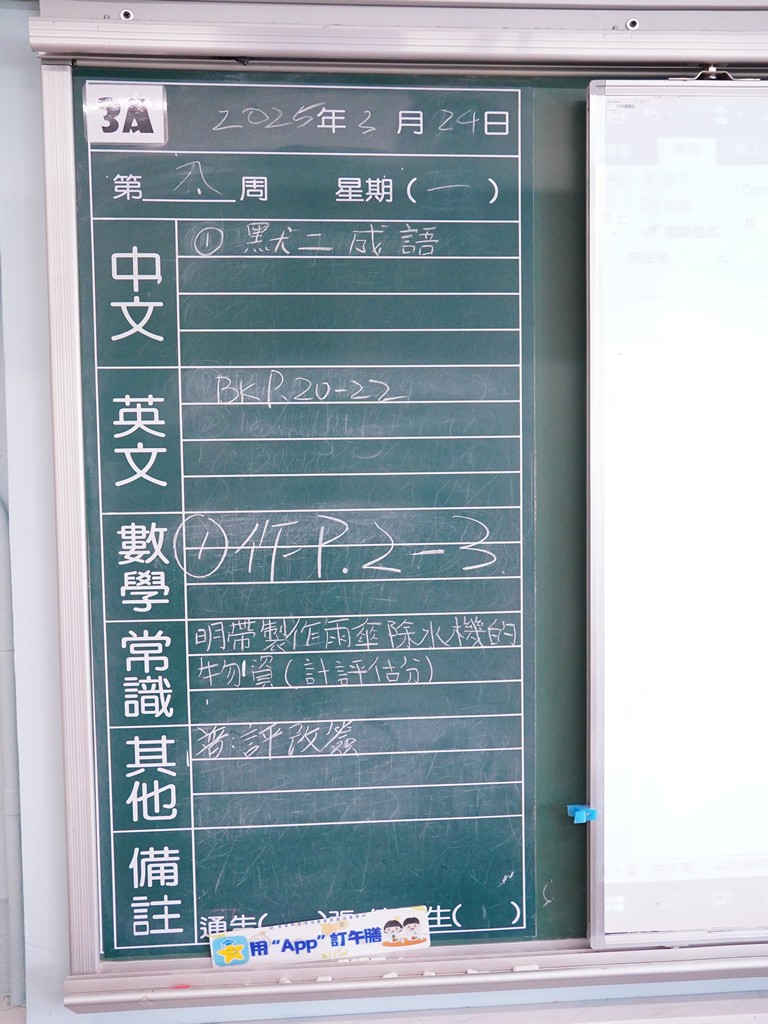 3A
2025年3月24日
第八周 星期(一)
中文
① 默二成語
英文
BK P.20-22
數學
① 作P.2-3
常識
明帶製作雨傘除水機的
物資(計評估分)
其他
普:評改簽
備註
通告( ) 生( )
用“App”訂午膳